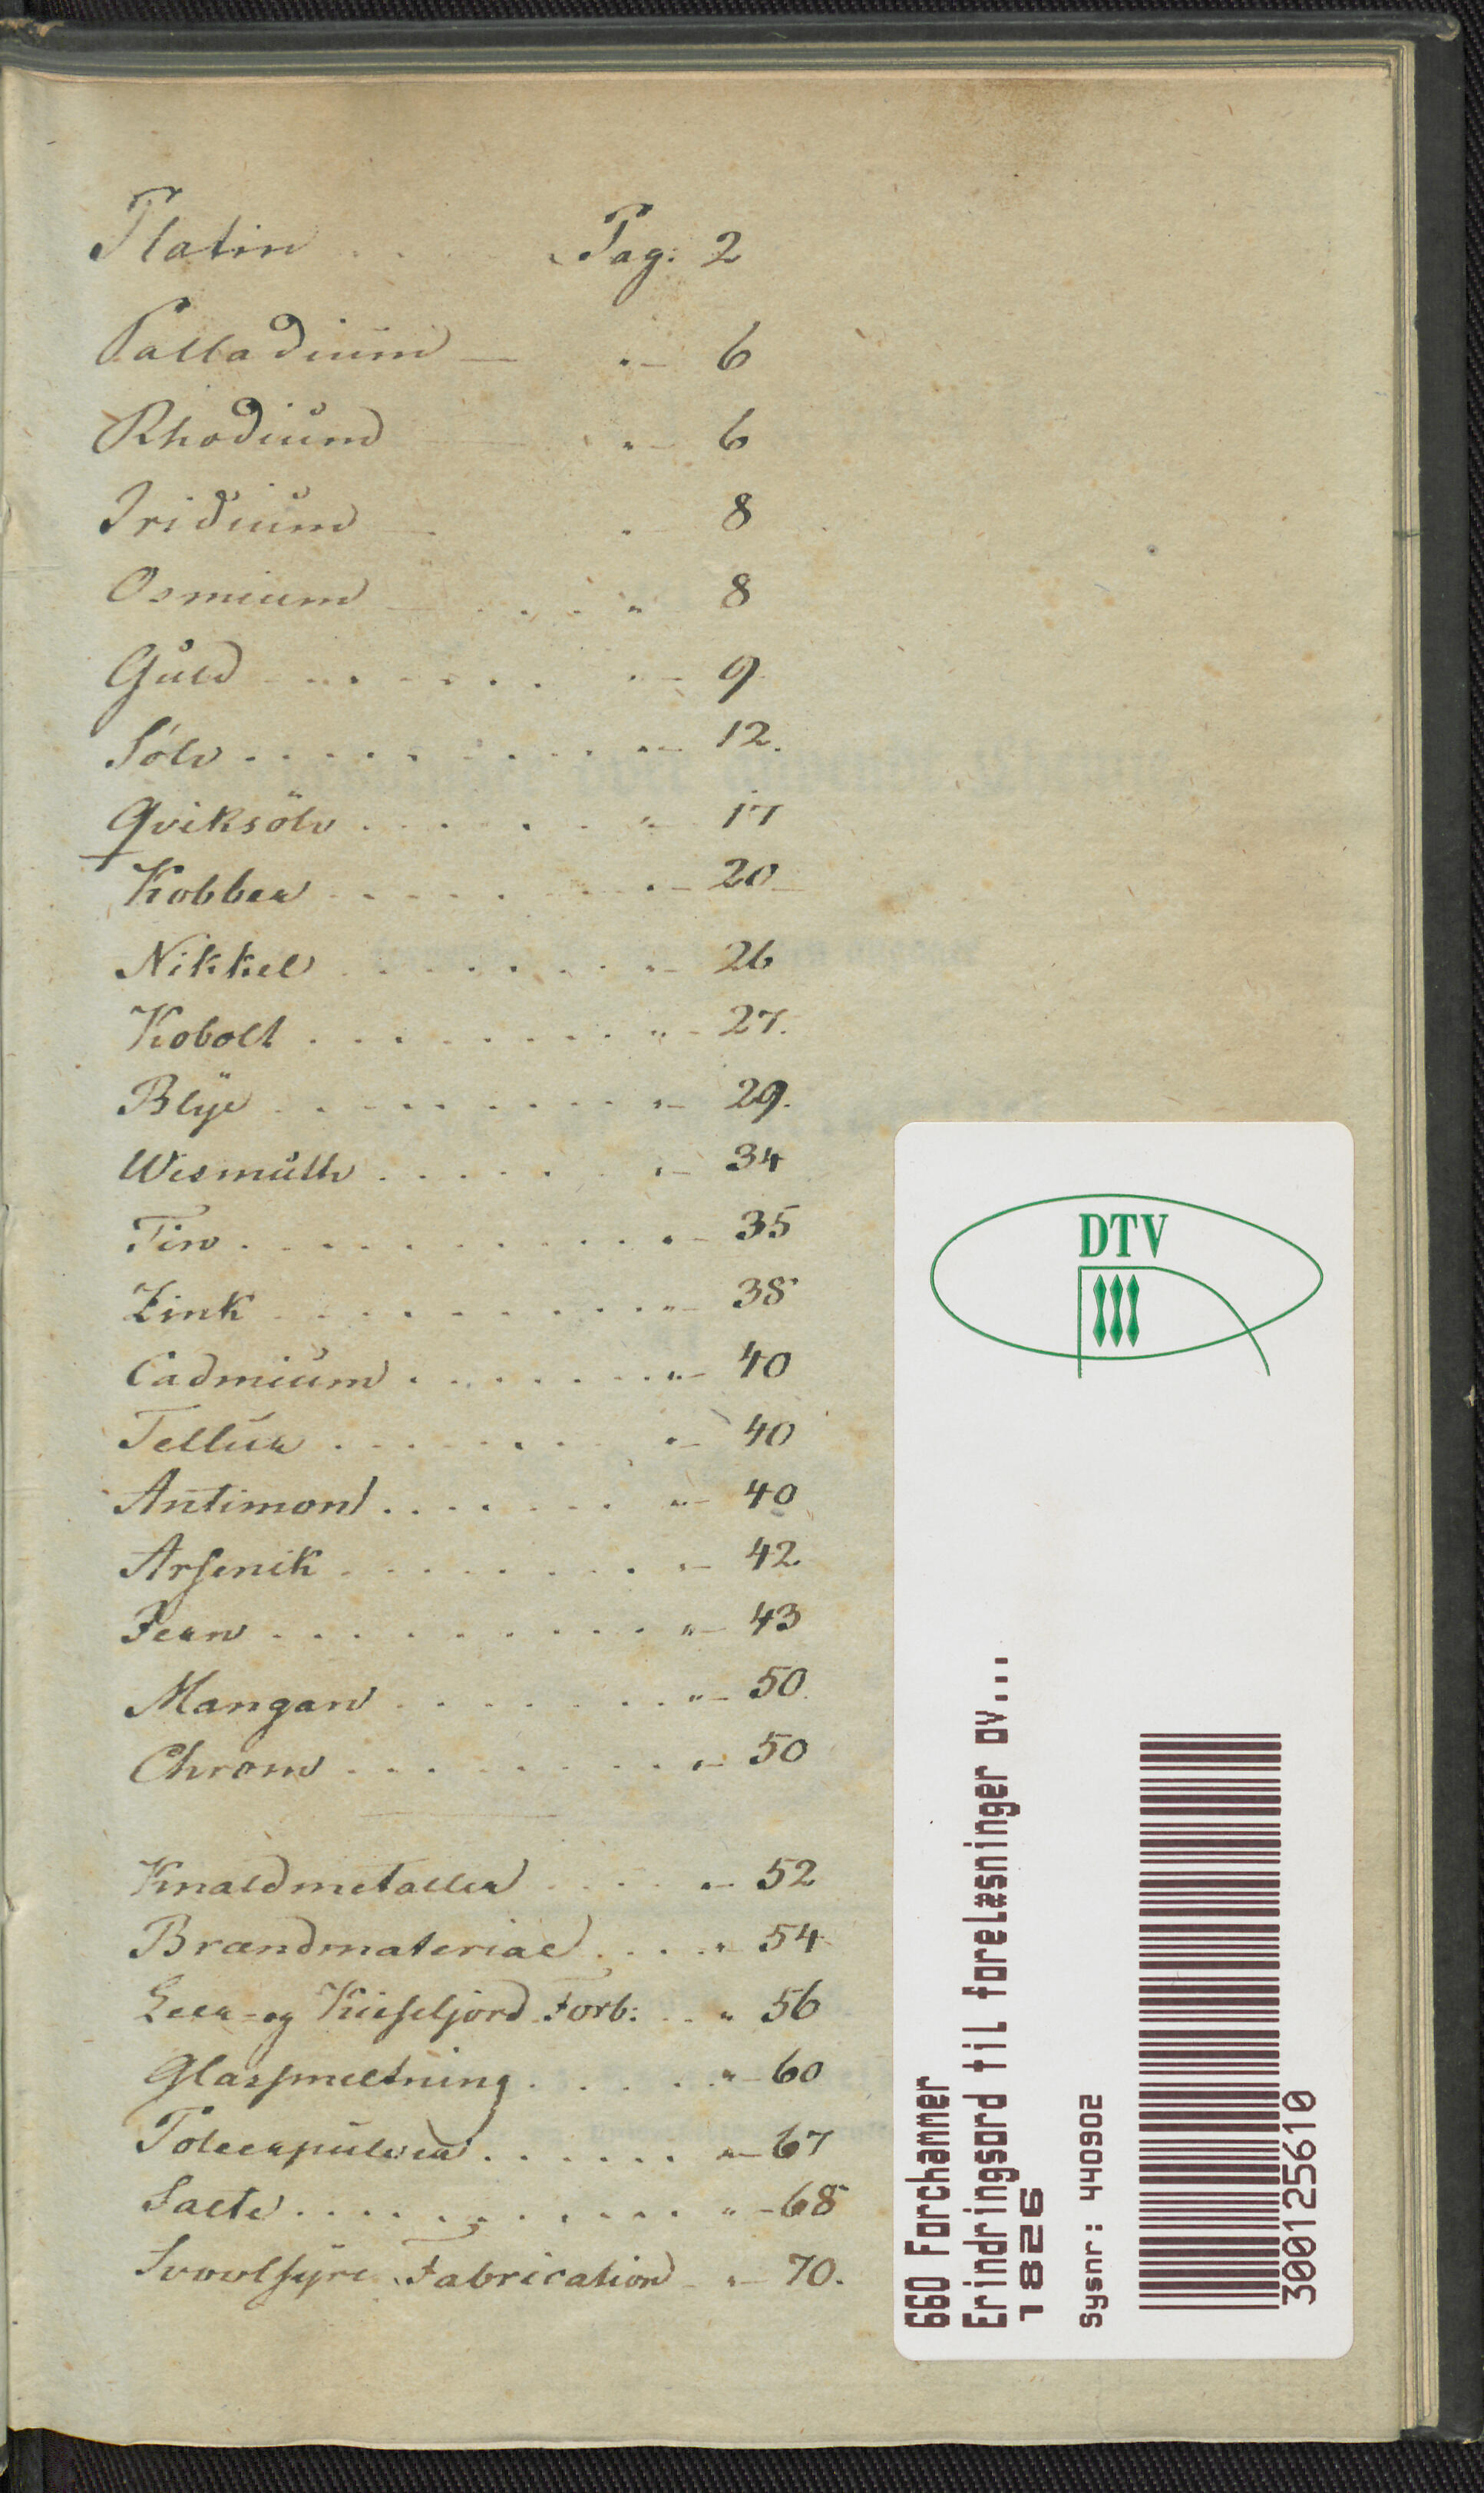 Platin . . . . . Pag: 2
Palladium — „ — 6
Rhodium — „ — 6
Iridium — „ 8
Osmium — . . . . „ 8
Guld . . . . . . . „ — 9
Sölv . . . . . . . . . „ — 12.
Qviksölv . . . . . . „ — 17
Kobber . . . . . . . . „ — 20
Nikkel . . . . . . . „ — 26
Kobolt . . . . . . . . „ — 27.
Blÿe . . . . . . . . . „ — 29.
Wismuth . . . . . . „ — 34
Tin . . . . . . . . . . „ — 35
Zink . . . . . . . . . „ — 38
Cadmium . . . . . . . „ — 40
Tellur . . . . . . . „ — 40
Antimon . . . . . . . „ — 40
Arsenik . . . . . . . . „ — 42
Jern . . . . . . . . . . „ — 43
Mangan . . . . . . . „ — 50.
Chrom . . . . . . . . „ — 50
Knaldmetaller . . . . „ — 52
Brændmateriae . . . . „ 54
Leer-og Kieseljord Forb: . . „ 56
Glassmeltning . . . . . „ — 60
Poleerpulver . . . . . . „ — 67
Salte . . . . . . . . . . „ — 68
Svovlsyre Fabrication — „ — 70.
DTV
660 Forchammer
Erindringsord til forelæsninger ov...
1826
Sysnr: 440902
300125610